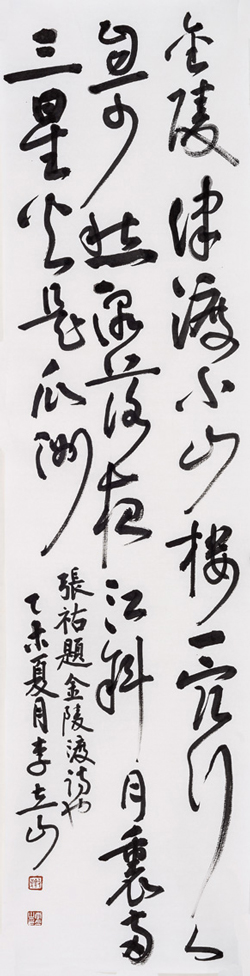 金陵津渡小山樓一宿行人
自可愁潮落夜江斜月裏兩
三星火是瓜洲
張祐題金陵渡詩也
乙未夏月李立山